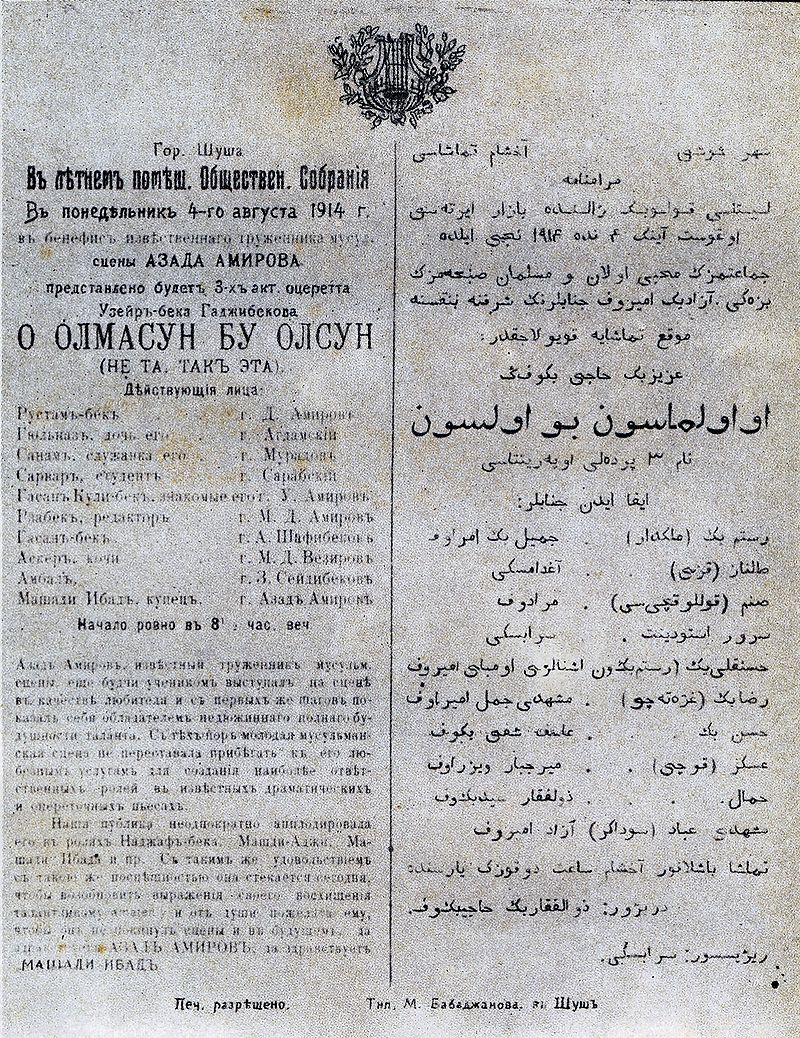 Гор. Шуша.
Въ лѣтнемъ помѣщ. Обществен. Собранія
Въ понедѣльникъ 4-го августа 1914 г.
въ бенефисъ извѣстнаго труженника мусул.
сцены АЗАДА АМИРОВА
представлено будетъ 3-хъ акт. оперетта
Узейръ-бека Гаджибекова
О ОЛМАСУН БУ ОЛСУН
(НЕ ТА, ТАКЪ ЭТА).
Дѣйствующія лица:
Рустамъ-бекъ г. Д. Амировъ
Гюльназъ, дочь его г. Агдамскій
Санамъ, служанка его г. Мурадовъ
Сарваръ, студентъ г. Сарабскій
Гасанъ Кули-бекъ, знакомые его г. У. Амировъ
Рзабекъ, редакторъ г. М. Д. Амировъ
Гасанъ-бекъ г. А. Шафибековъ
Аскеръ, кочи г. М. Д. Везировъ
Амбалъ, г. З. Сейдибековъ
Машади Ибадъ, купецъ, г. Азадъ Амировъ
Начало ровно въ 8 час. веч.
Азадъ Амировъ, извѣстный труженникъ мусульм.
сцены, еще будучи ученикомъ выступалъ на сценѣ
въ качествѣ любителя и съ первыхъ же шаговъ по-
казалъ себя обладателемъ недюжиннаго полнаго бу-
дущности таланта. Съ тѣхъ поръ молодая мусульман-
ская сцена не переставала прибѣгать къ его лю-
безнымъ услугамъ для созданія наиболѣе отвѣт-
ственныхъ ролей въ извѣстныхъ драматическихъ
и опереточныхъ пьесахъ.
Наша публика неоднократно апплодировала
его въ роляхъ Наджафъ-бека, Машади-Аджи, Ма-
шади Ибадъ и пр. Съ такимъ же удовольствіемъ
съ такою же поспѣшностью она стекается сегодня,
чтобы возобновить выраженія своего восхищенія
талантливому и отъ души пожелать ему,
чтобы онъ не покинулъ сцены и въ будущемъ, да
АЗАДЪ АМИРОВЪ, да здравствуетъ
МАШАДИ ИБАДЪ
شهر شوشی آخشام تماشاسی
مرامنامه
جماعتمزك محبی اولان و مسلمان صحنه‌مزك
موقع تماشایه قویولاجقدر:
عزیر بك حاجی بکوفك
او اولماسون بو اولسون
نام ۳ پرده‌لی اوپه‌ریتاسی
ایفا ایدن جنابلر:
رستم بك (ملکدار) جمیل بك امیراوف
گلناز (قزی) آغدامسکی
صنم (قوللوقچی‌سی) مرادوف
سرور استودینت سرابسکی
رضا بك (غزه‌ته‌چی) مشهدی جمل امیراوف
حسن بك شفیع بکوف
عسکر (قوچی) میرجبار ویزراوف
حمال ذوالفقار سیدبکوف
مشهدی عباد (سوداگر) آزاد امیروف
تماشا باشلانور آخشام ساعت دوقوزك یارسنده
دریژور: ذوالفقار بك حاجیبکوف.
ریژیسور: سرابسکی.
Печ. разрѣшено. Тип. М. Бабаджанова, въ Шушѣ